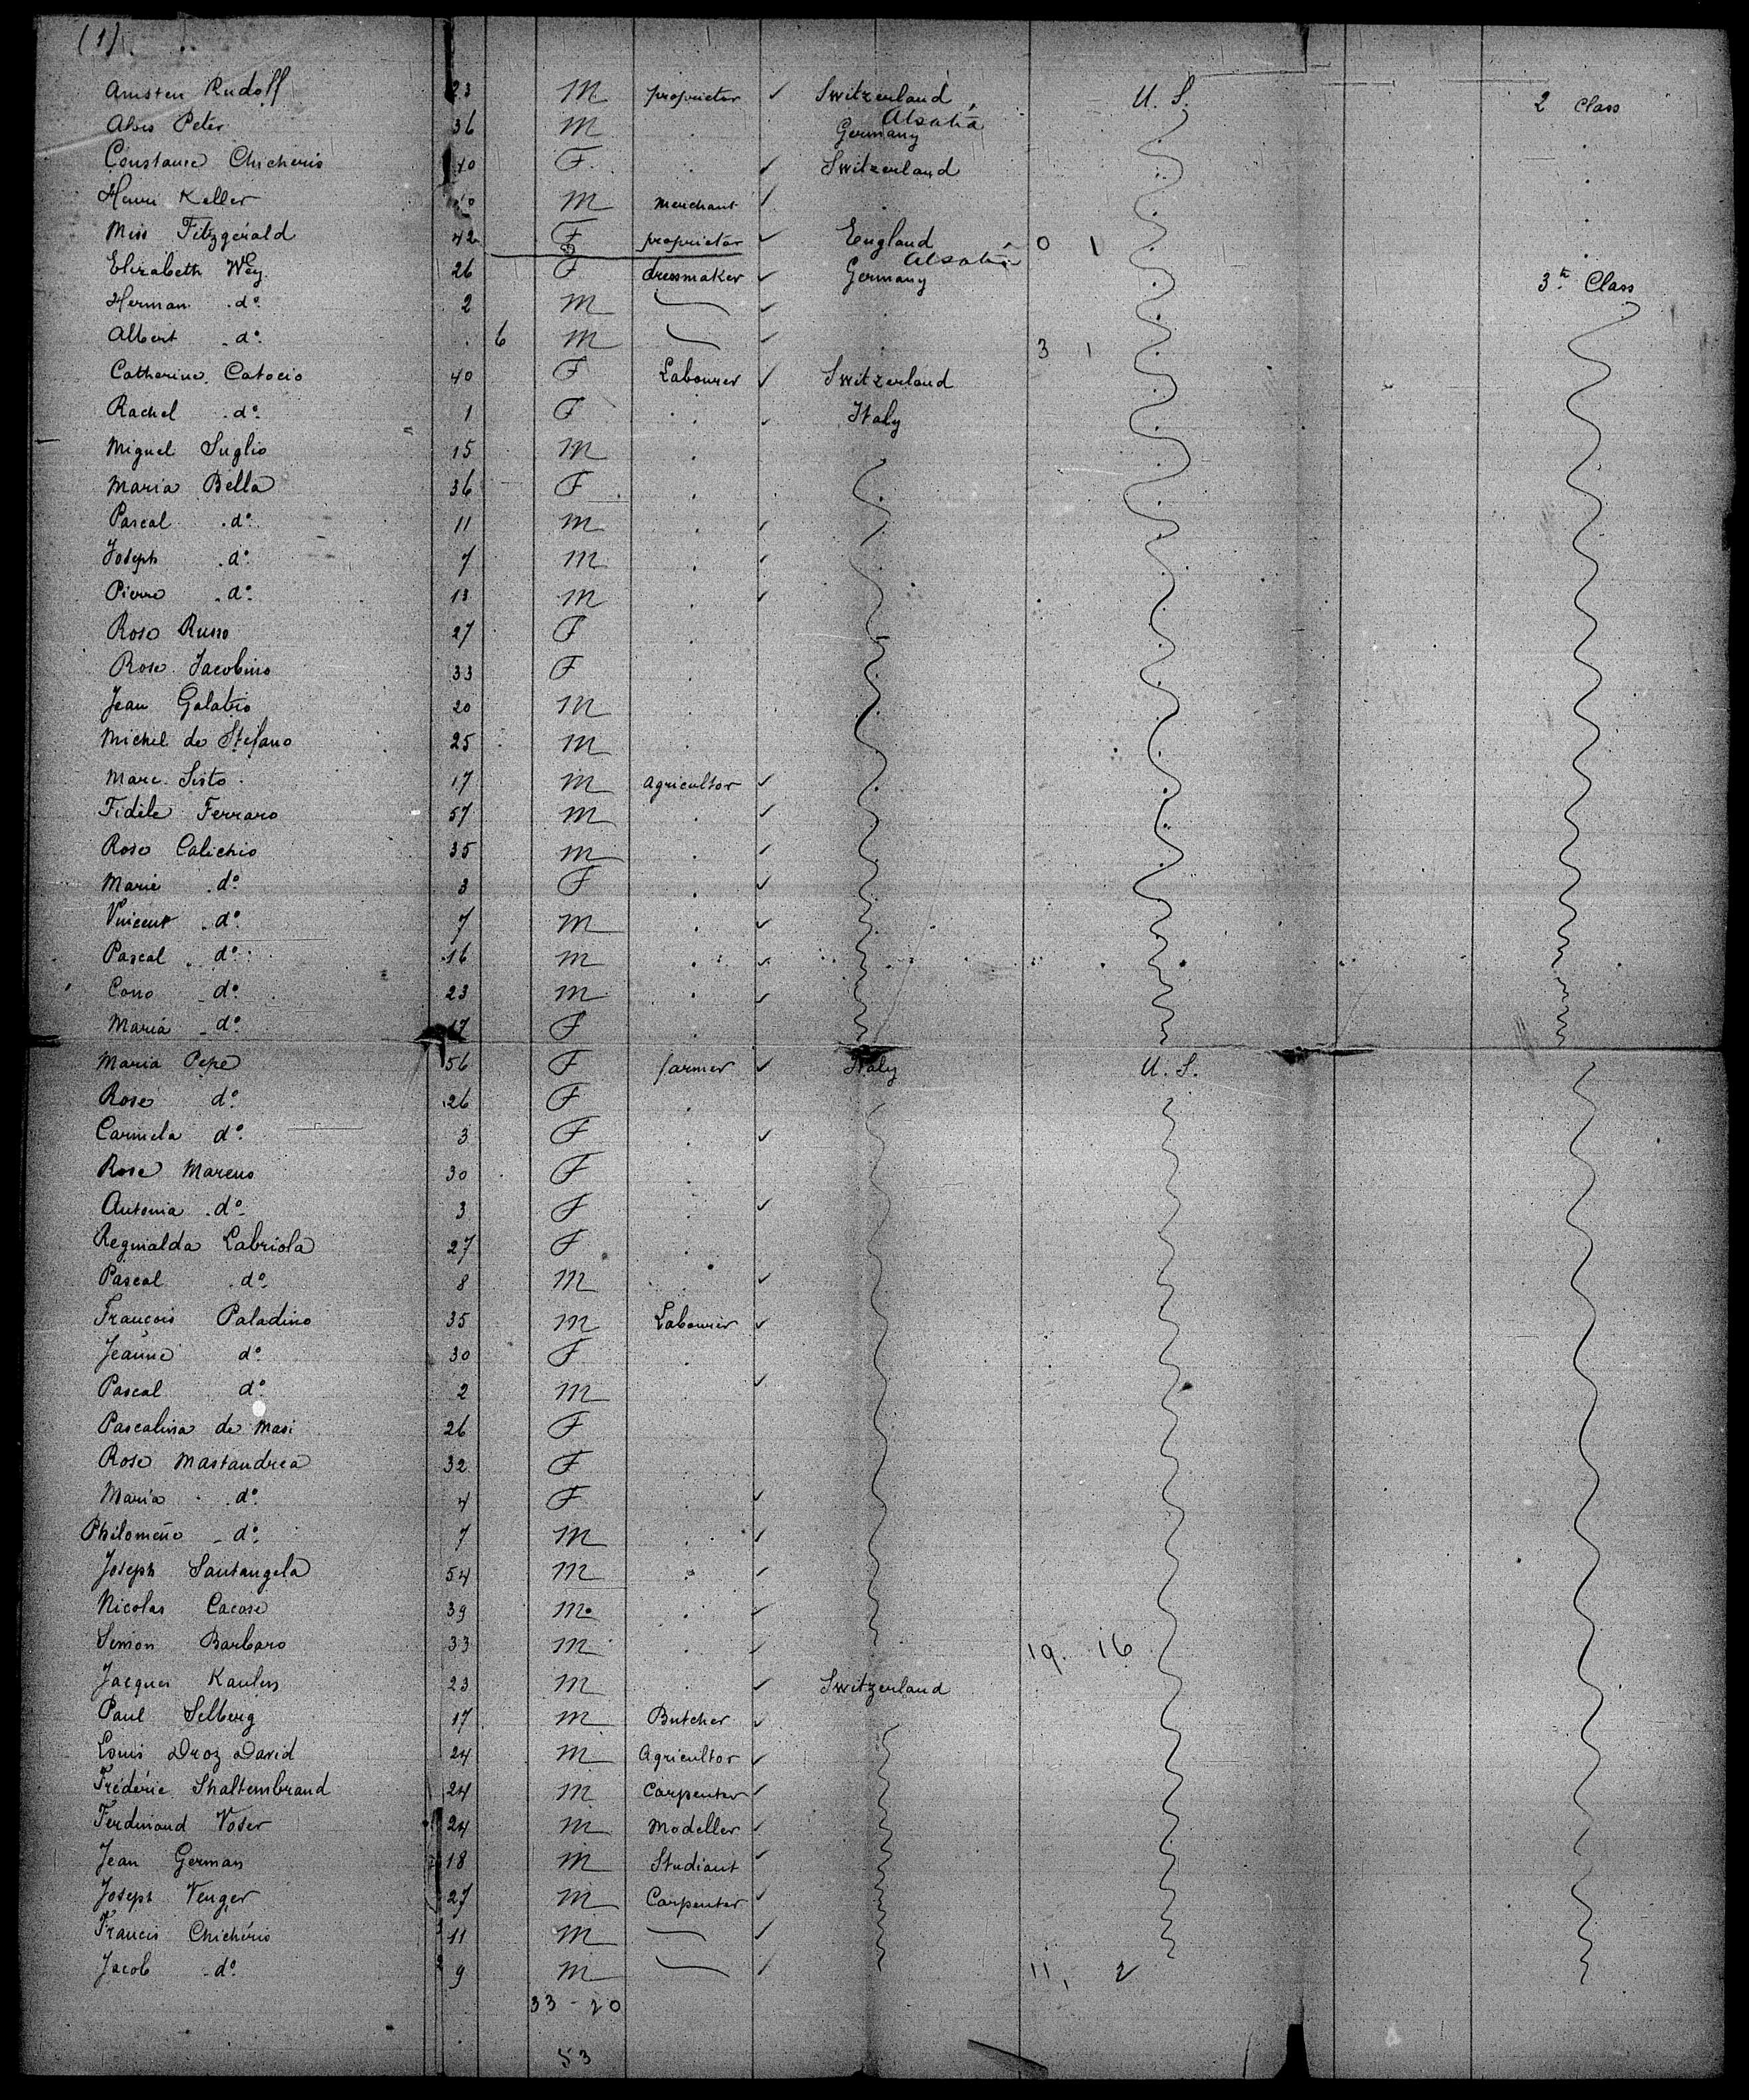 (1)
Rudolf 23 M proprietor ✓ Switzerland U. S. 2 Class
Peter 36 M . Germany Alsatia .
Constance Chicherio 40 F. . ✓ Switzerland .
Henri Keller M merchant ✓ . .
Miss Fitzgérald 42 F proprietor ✓ England 0 1 .
Elisabeth Wey 26 F dressmaker ✓ Germany Alsatia 3.th Class
Herman . do 2 M ✓ .
Albert . do . 6 M ✓ . 3 1
Catherine Catocio 40 F Labourer ✓ Switzerland
Rachel . do 1 F . ✓ Italy
Miguel Suglio 15 M .
Maria Bella 36 F .
Pascal . do 11 M . ✓
Joseph . do 7 M . ✓
Pierre . do 13 M . ✓
Rose Russo 27 F .
Rose Jacobino 33 F .
Jean Galatro 20 M .
Michel de Stefano 25 M .
Marc Sisto 17 M Agricultor ✓
Fidèle Ferraro 57 M . ✓
Rose Calichio 35 M . ✓
Marie . do 3 F . ✓
Vincent . do 7 M . ✓
Pascal . do 16 M . ✓
Cono . do 23 M . ✓
Maria . do 17 F .
Maria Pepe 56 F farmer ✓ Italy U. S.
Rose do 26 F .
Carmela do 3 F . ✓
Rose Mareno 30 F .
Antonia . do 3 F . ✓
Reginalda Labriola 27 F .
Pascal . do 8 M . ✓
François Paladino 35 M Labourer ✓
Jeanne do 30 F .
Pascal do 2 M ✓
Pascalina de Masi 26 F
Rose Mastandrea 32 F .
Maria . do 4 F . ✓
Philomène . do 7 M . ✓
Joseph Santangela 54 M . ✓
Nicolas Cacose 39 M . ✓
Simon Barbaro 33 M . ✓ 19. 16
Jacques 23 M . ✓ Switzerland
Paul Selberg 17 M Butcher ✓
Louis Droz David 24 M Agricultor ✓
Frédéric Shaltembrand 24 M Carpenter ✓
Ferdinand Voser 24 M Modeller ✓
Jean German 18 M Studiant ✓
Joseph Venger 27 M Carpenter ✓
Francis Chichério 11 M ✓
Jacob . do 9 M ✓ 11, 2
33 - 20
53